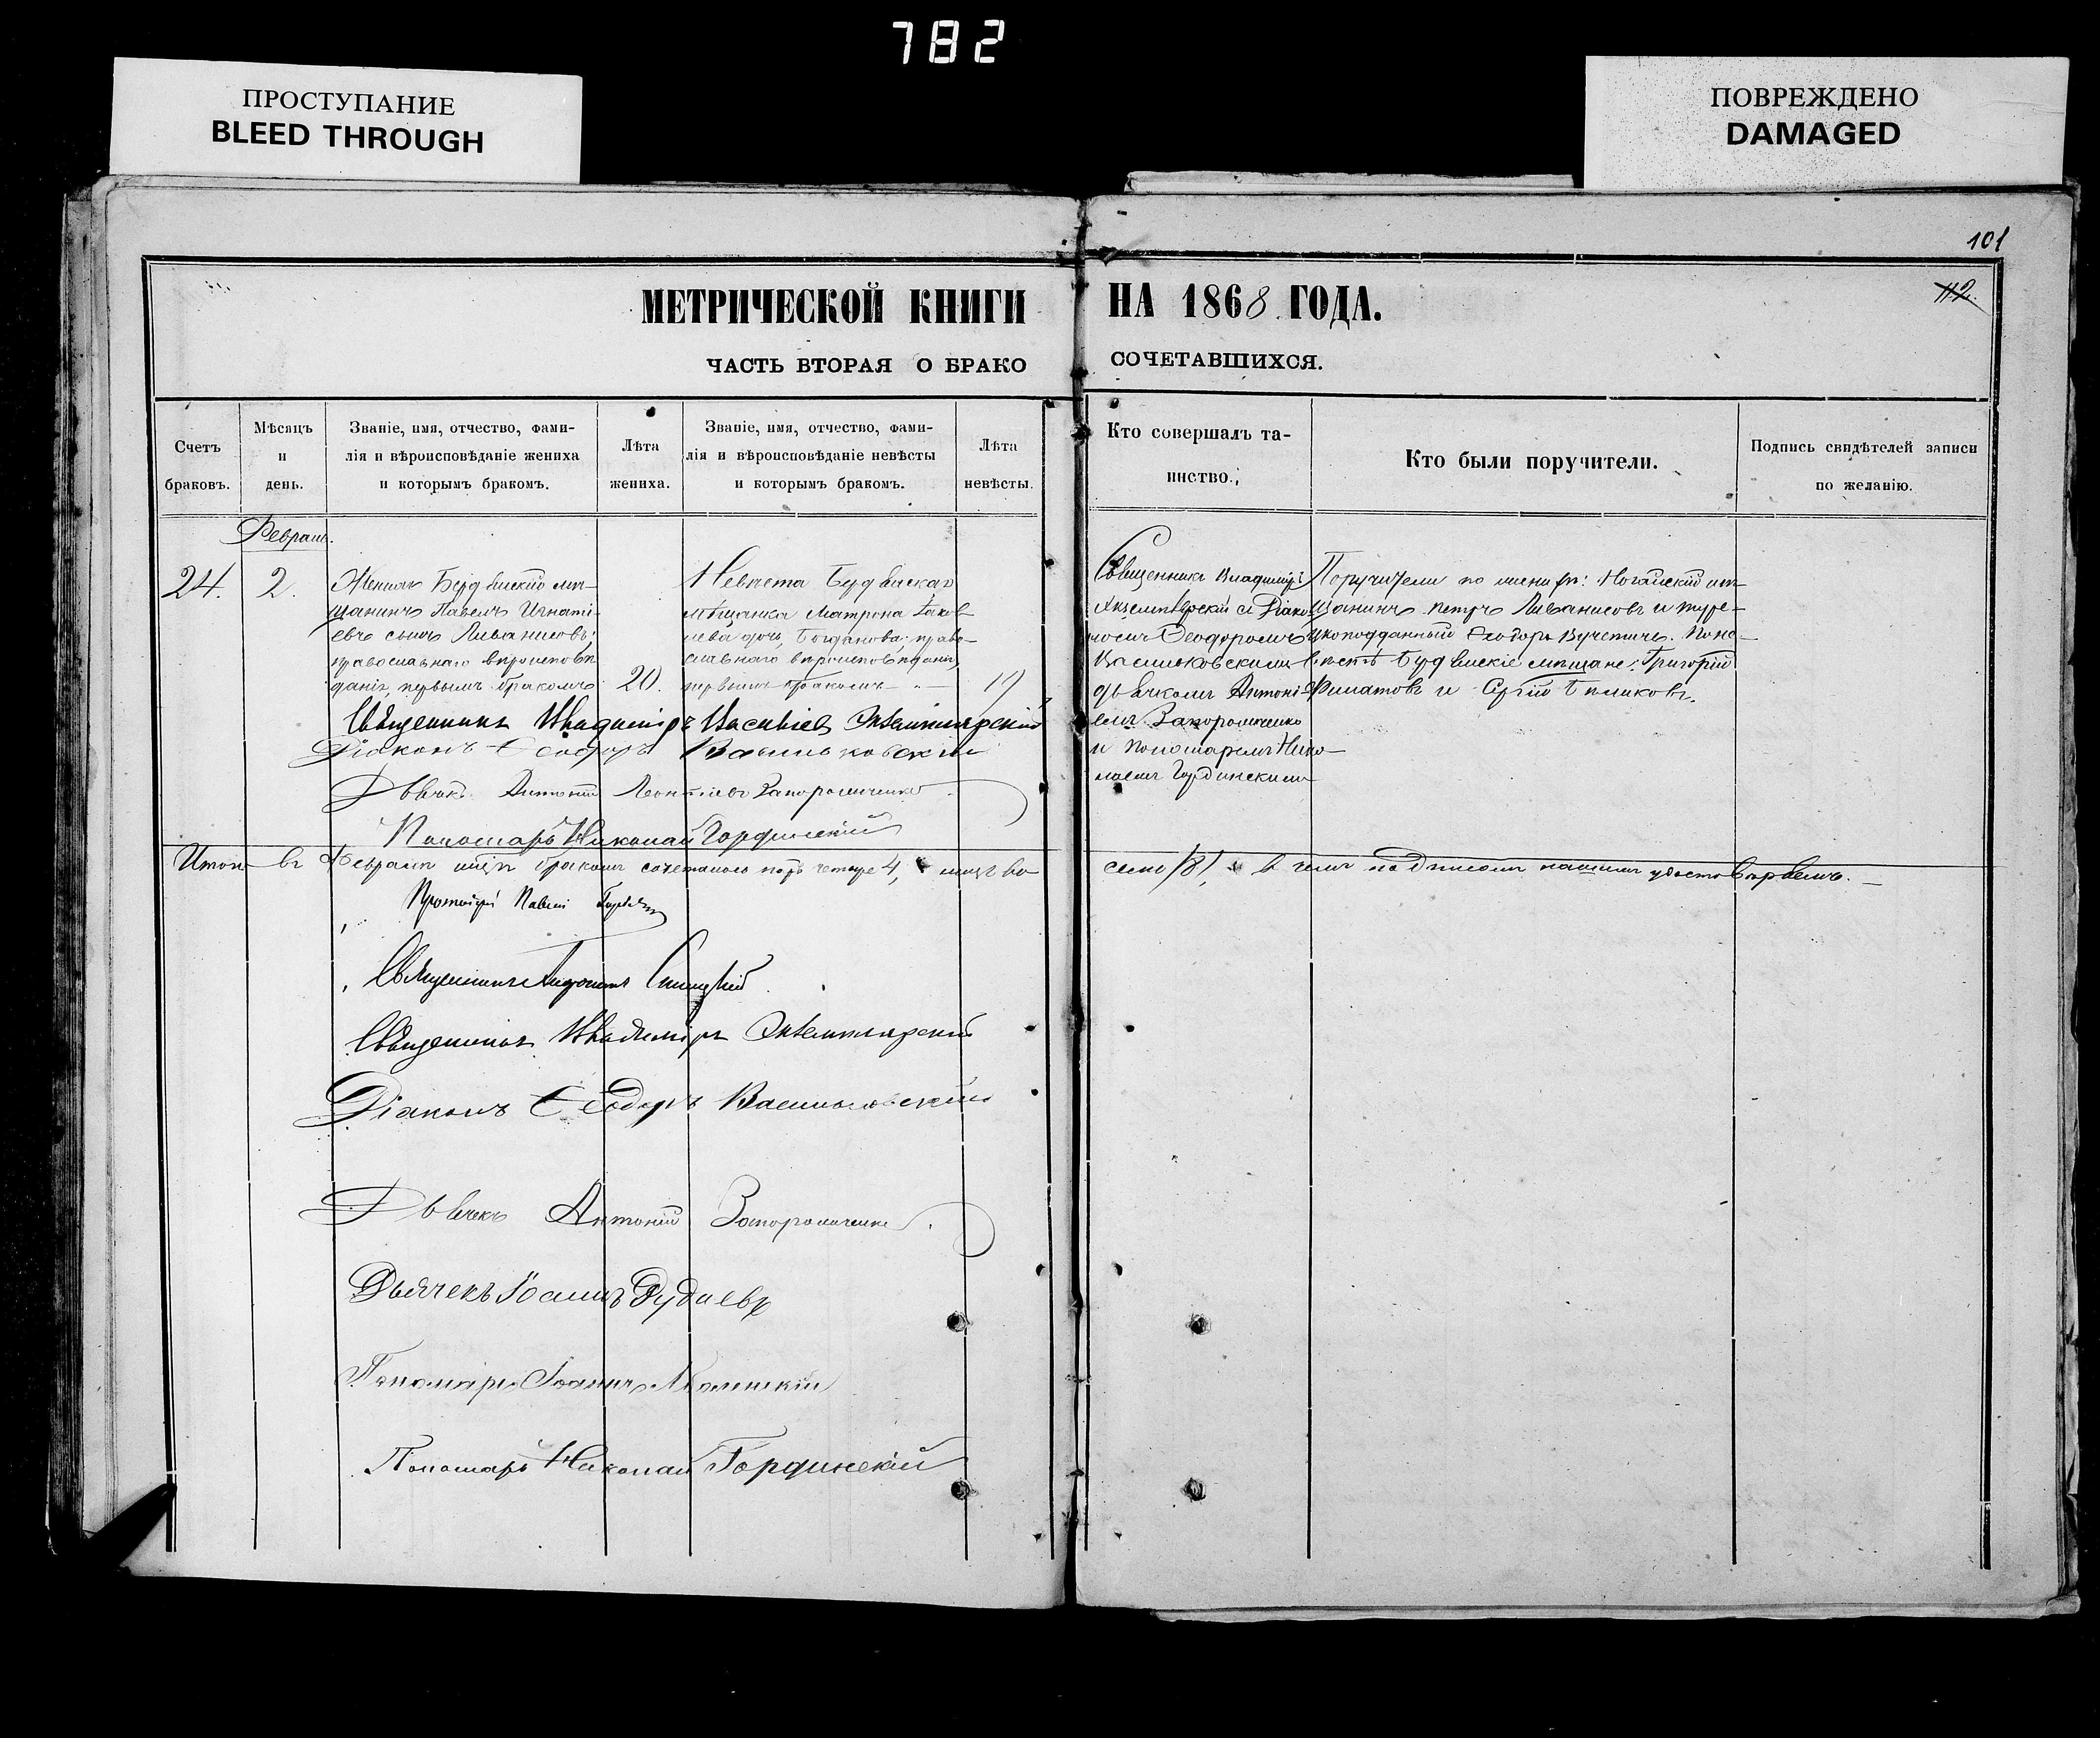 782
ПРОСТУПАНИЕ
BLEED THROUGH
ПОВРЕЖДЕНО
DAMAGED
101
112.
МЕТРИЧЕСКОЙ КНИГИ НА 1868 ГОДА.
ЧАСТЬ ВТОРАЯ О БРАКО СОЧЕТАВШИХСЯ.
Счетъ
браковъ.
Мѣсяцъ
и
день.
Званіе, имя, отчество, фами-
лія и вѣроисповѣданіе жениха
и которымъ бракомъ.
Лѣта
жениха.
Званіе, имя, отчество, фами-
лія и вѣроисповѣданіе невѣсты
и которымъ бракомъ.
Лѣта
невѣсты.
Кто совершалъ та-
инство.
Кто были поручители.
Подпись свидѣтелей записи
по желанію.
Февраль.
24.
2.
Женихъ Бердянскій мѣ-
щанинъ Павелъ Игнаті-
евъ сынъ Ливанисовъ;
православнаго вѣроисповѣ
данія, первымъ бракомъ
20.
Невѣста Бердянская
мѣщанка Матрона Іаков-
лева дочь, Богданова; право-
славнаго вѣроисповѣданія,
первымъ бракомъ
Священникъ Владиміръ
Экземплярскій съ Діако
номъ Ѳеодоромъ
Васильковскимъ
дьячкомъ Антоні
емъ Запорожченко
и пономаремъ Нико-
лаемъ Гординскимъ
Поручители по женихѣ: Ногайскій мѣ-
щанинъ Петръ Ливанисовъ и туре-
цкоподданный Ѳеодоръ Вучетичъ. По не-
вѣстѣ Бердянскіе мѣщане: Григорій
Филатовъ и Сергій Бѣликовъ.
Священникъ Владиміръ Васильевъ Экземплярскій
Діаконъ Ѳеодоръ Васильковскій
Дьячекъ Антоній Леонтіевъ Запорожченко
Пономарь Николай Гординскій
Итого въ Февралѣ мѣсяцѣ бракомъ сочеталось паръ четыре 4, лицъ во
семь /8/, въ чемъ подписомъ нашимъ удостовѣряемъ.
Протоіерей Павелъ
Священникъ
Священникъ Владиміръ Экземплярскій
Діаконъ Ѳеодоръ Васильковскій
Дьячекъ Антоній Запорожченко
Дьячекъ Іоаннъ Рудневъ
Пономарь Іоаннъ
Пономарь Николай Гординскій